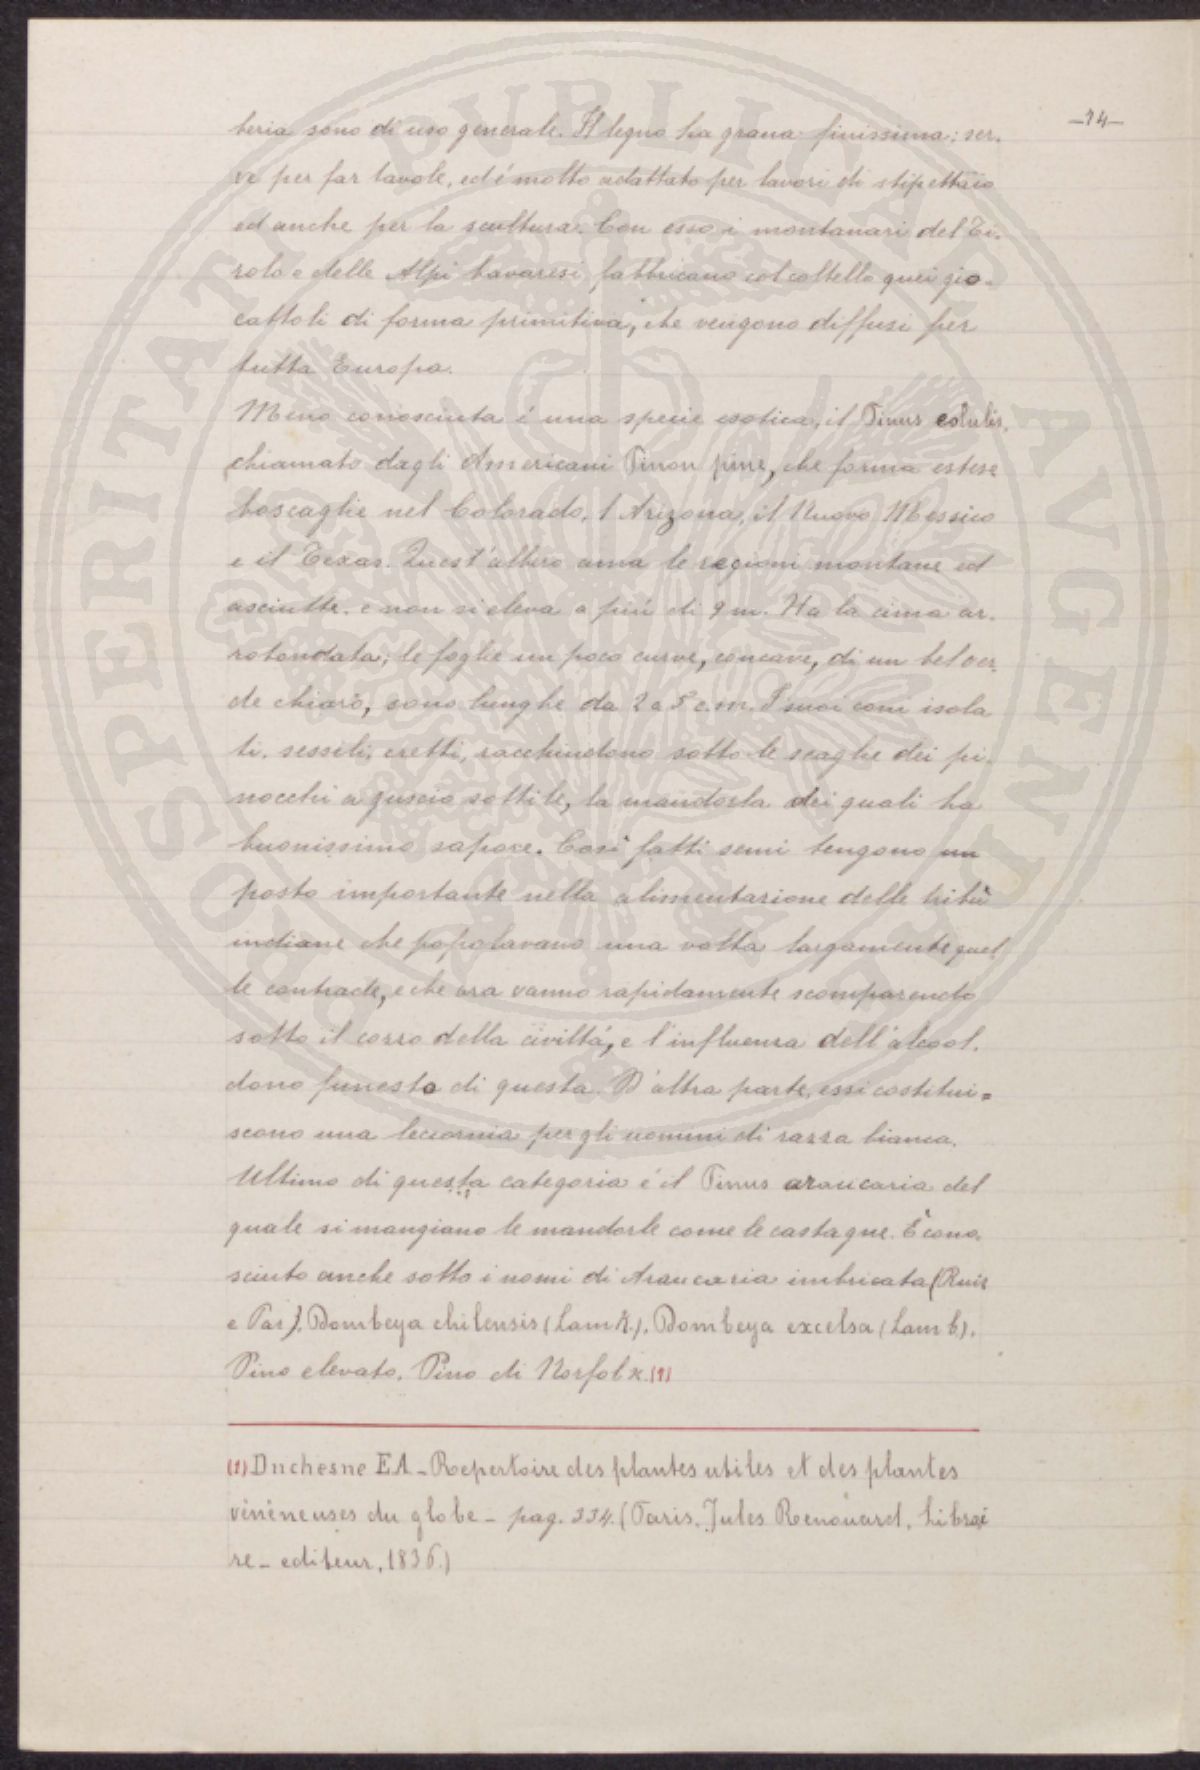 -74-
teria sono di uso generale. Il legno ha grana finissima; ser.
ve per far tavole, ed é molto adattato per lavori di stipettaio
ed anche per la scultura. Con esso i montanari del Ti.
rolo e delle Alpi bavaresi fabbricano col coltello quei gio-
cattoli di forma primitiva, che vengono diffusi per
tutta Europa.
Meno conosciuta é una specie esotica, il Pinus edulis,
chiamato dagli Americani Pinon pine, che forma estese
boscaglie nel Colorado, l'Arizona, il Nuovo Messico
e il Texas. Quest'albero ama le regioni montane ed
asciutte, e non si eleva a piú di 9 m. Ha la cima ar.
rotondata; le foglie un poco curve, concave, di un bel ver
de chiaro, sono lunghe da 2 a 5 c.m. I suoi coni isola
ti, sessili, eretti, racchiudono sotto le scaglie dei pi.
nocchi a guscio sottile, la mandorla dei quali ha
buonissimo sapore. Cosi' fatti semi tengono un
posto importante nella alimentazione delle tribù
indiane che popolavano una volta largamente quel
le contrade, e che ora vanno rapidamente scomparendo
sotto il cozzo della civiltá, e l'influenza dell'alcool,
dono funesto di questa. D'altra parte, essi costitui=
scono una leccornia per gli uomini di razza bianca.
Ultimo di questa categoria é il Pinus araucaria del
quale si mangiano le mandorle come le castagne. È cono.
sciuto anche sotto i nomi di Araucaria imbricata (Ruiz
e Pav). Dombeya chilensis (Lamk.). Dombeya excelsa (Lamb).
Pino elevato. Pino di Norfolk. (1)
(1) Duchesne EA - Repertoire des plantes utiles et des plantes
vénéneuses du globe - pag. 334. (Paris, Jules Renouard, Librai
re - editeur, 1836.)
PROSPERITATI PVBLICAE AVGENDAE